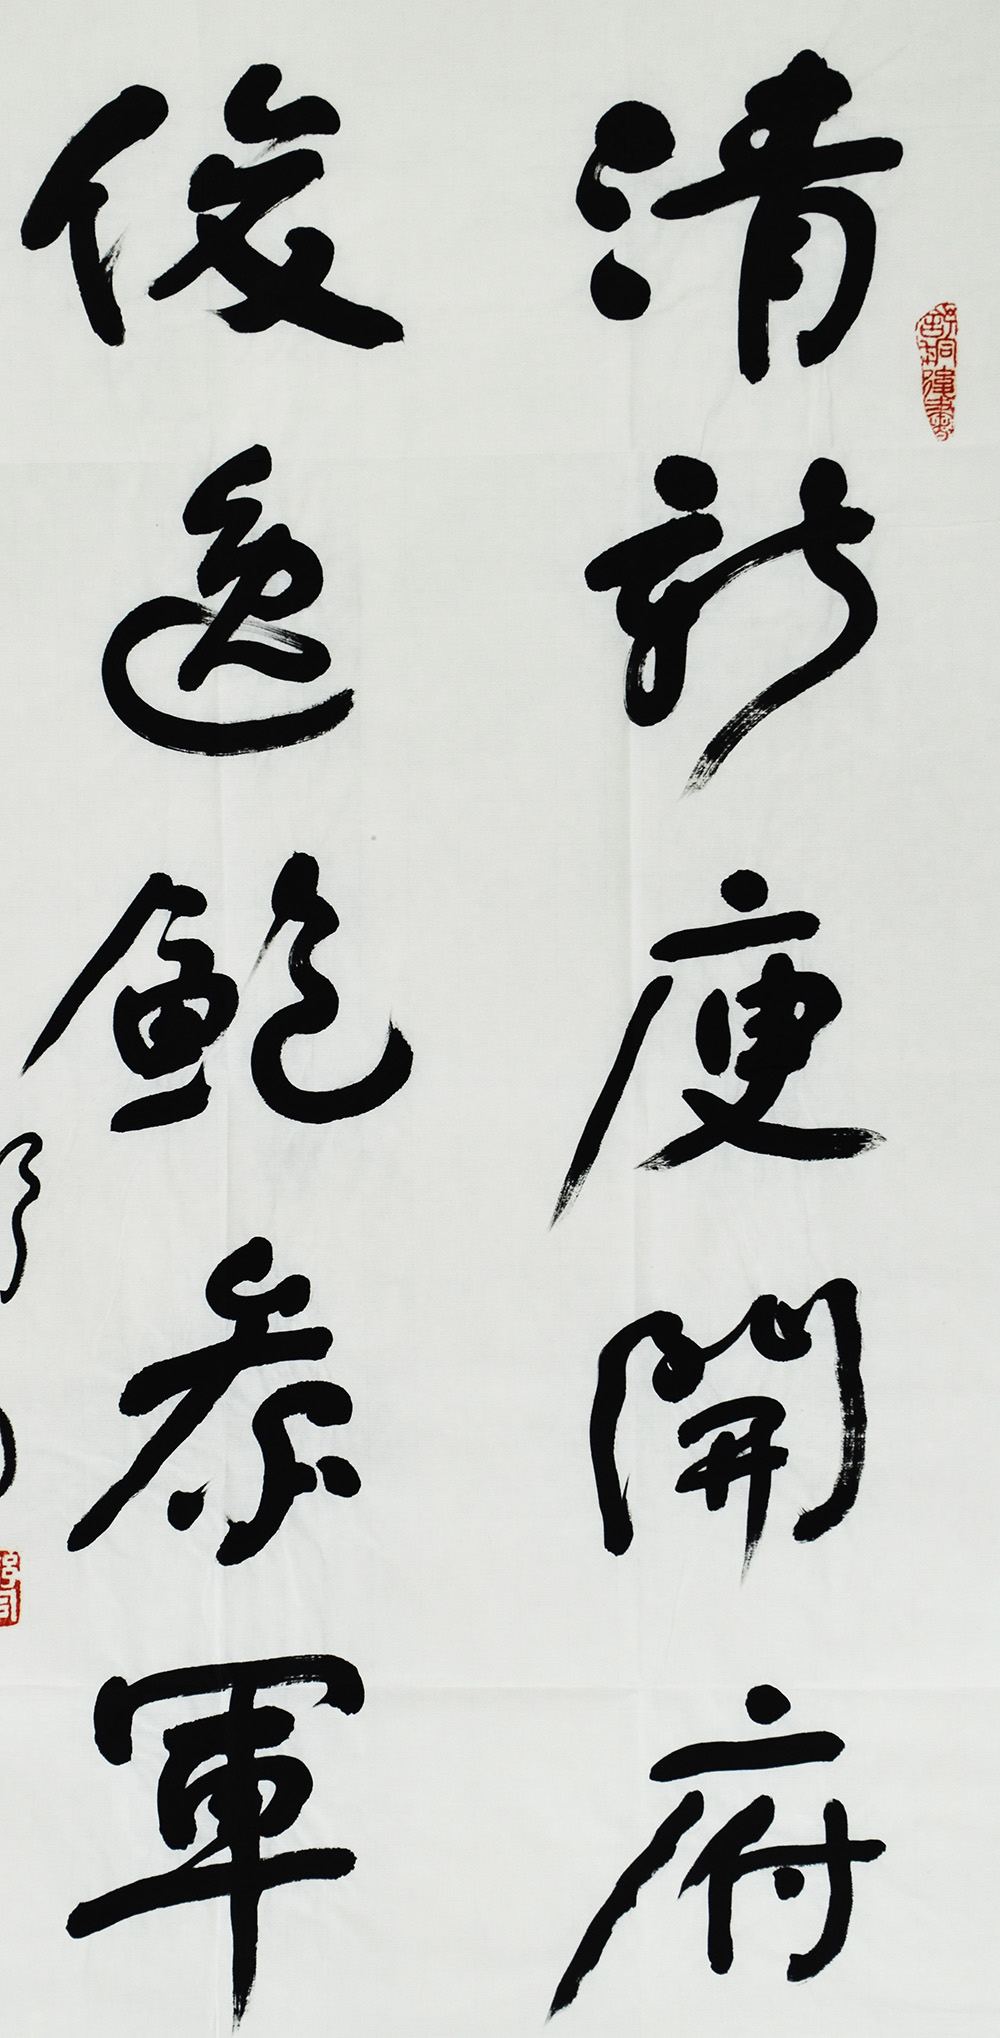 清新庾開府
俊逸鮑參軍